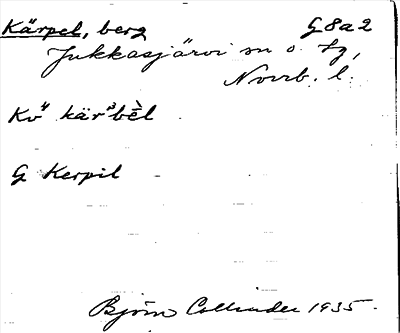 Kärpel, berg G8a2
Jukkasjärvi sn o. tg,
Norrb. l.
Kv¨ kär³bèl
G Kerpil
Björn Collinder 1935.